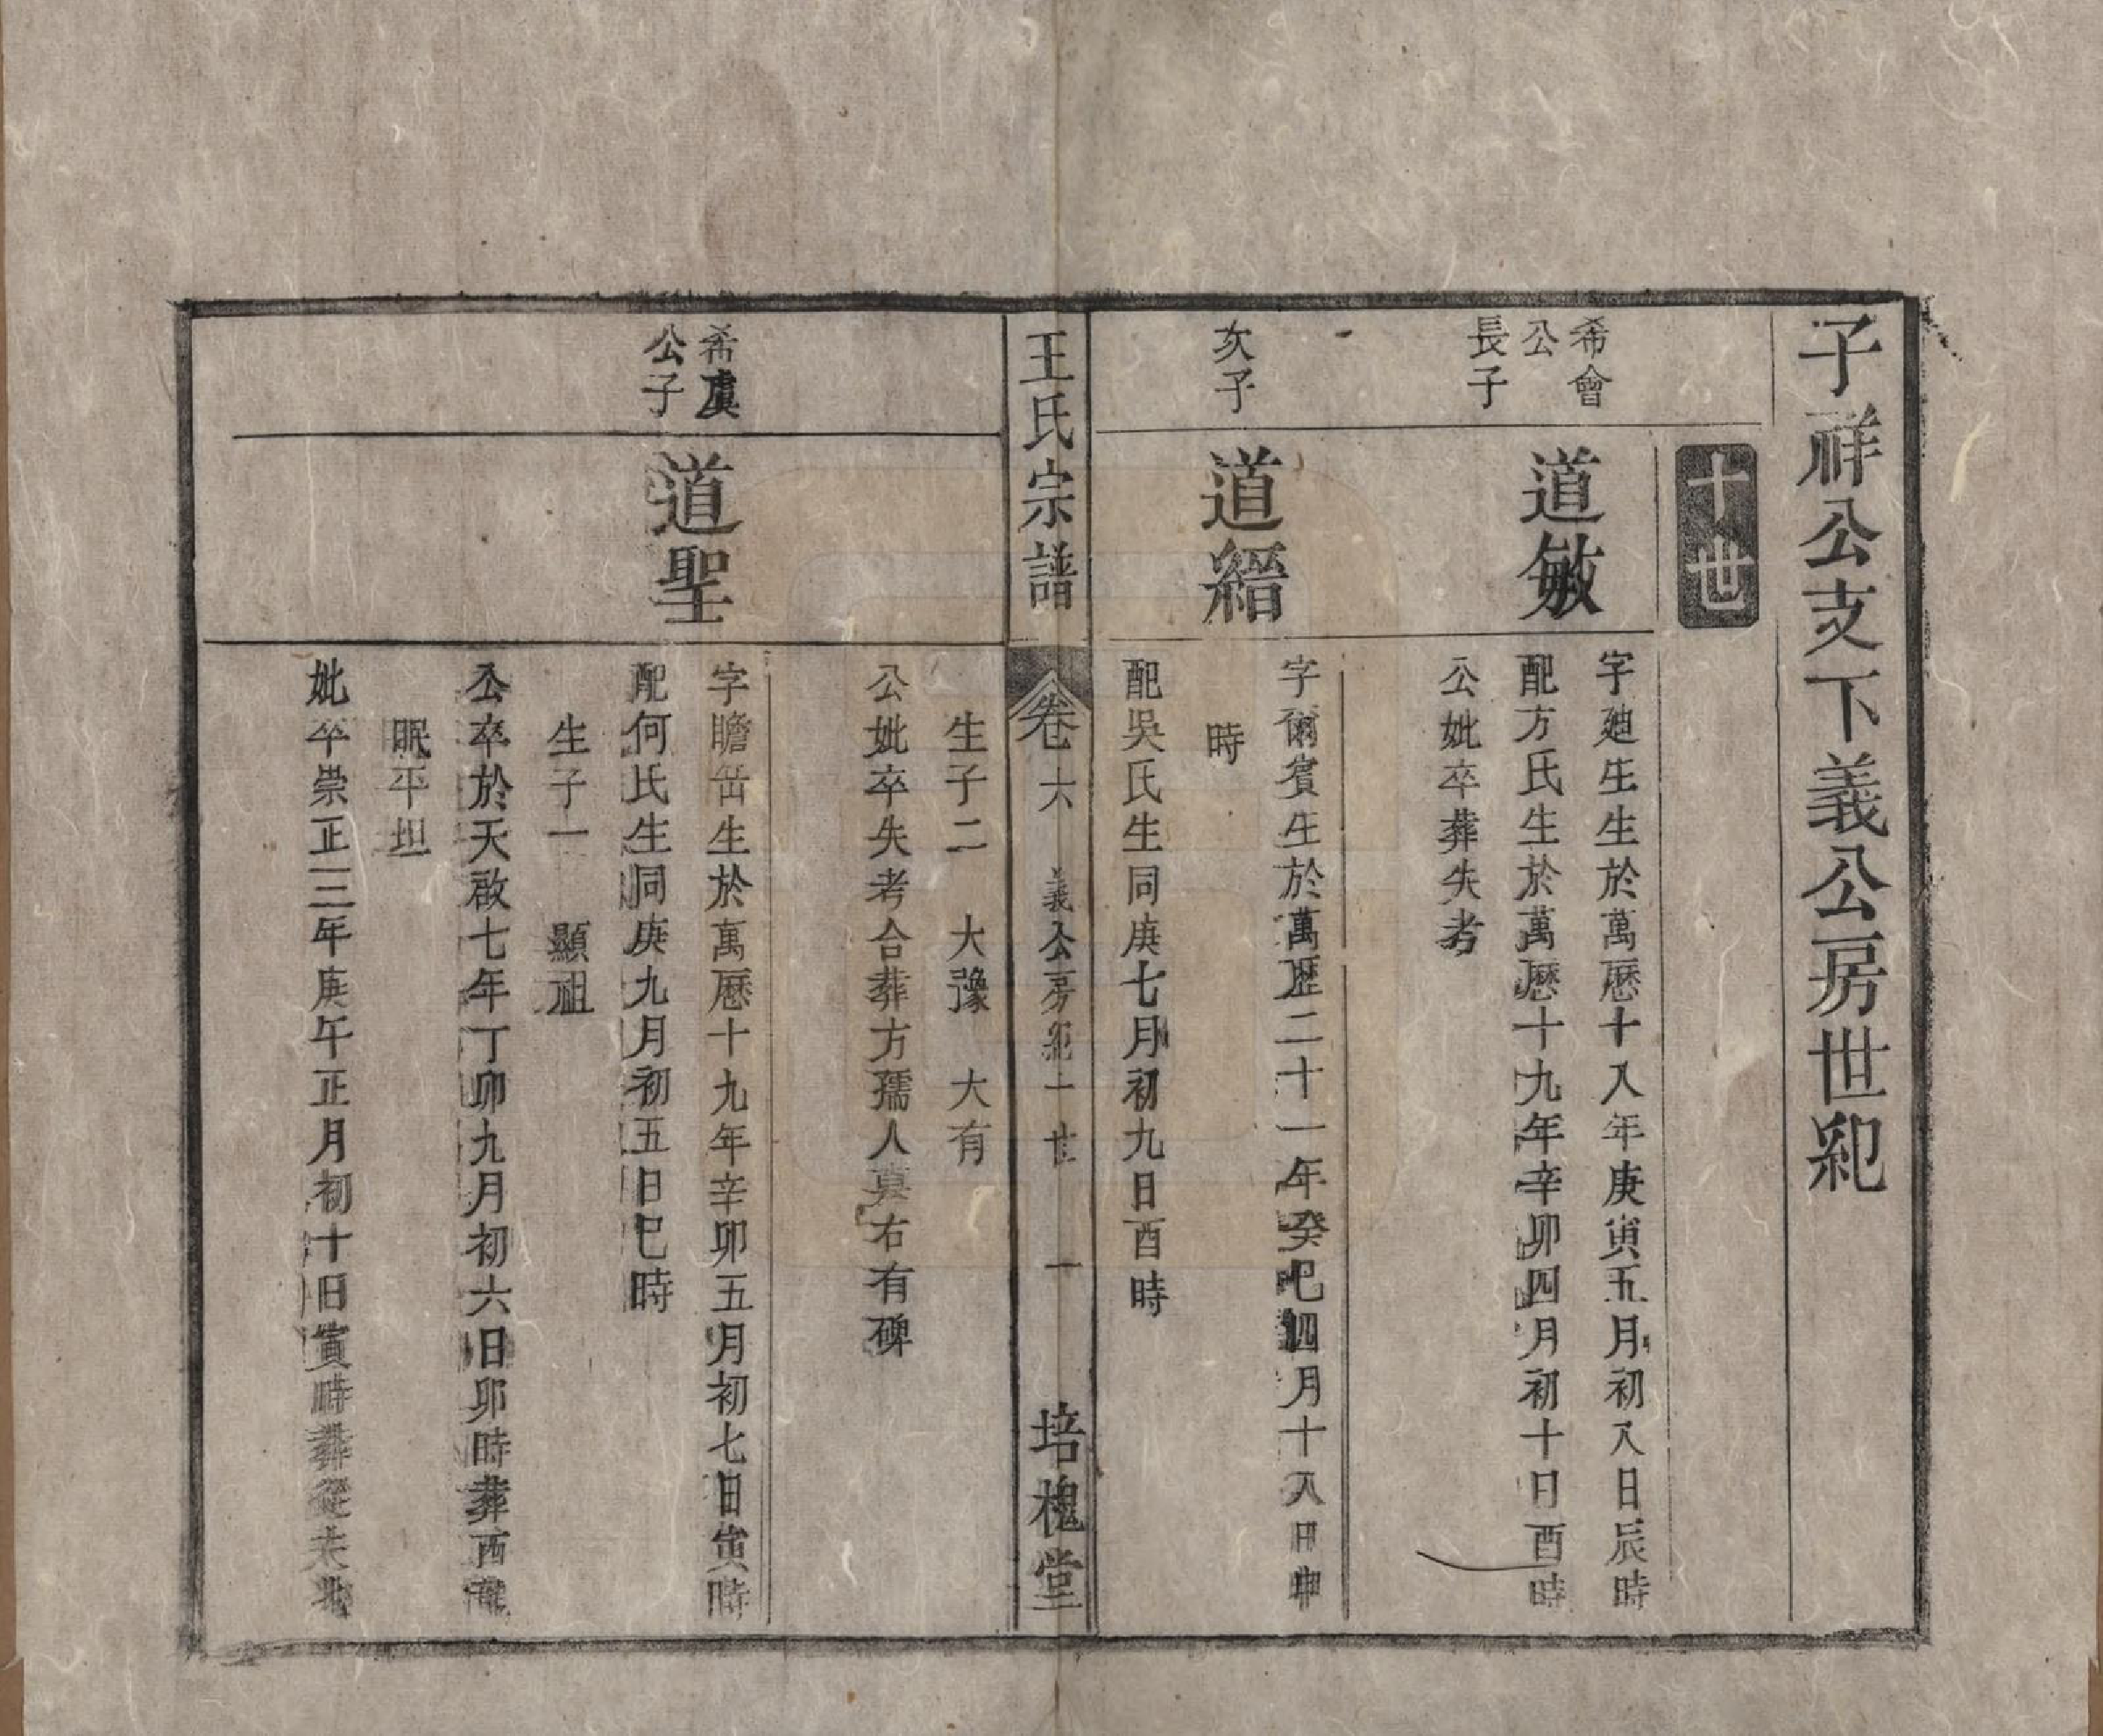 子祥公支下義公房世紀
十世
希會
公
長子
道敏
字廸生生於萬曆十八年庚寅五月初八日辰時
配方氏生於萬曆十九年辛卯四月初十日酉時
公妣卒葬失考
次子
道縉
字爾賓生於萬歷二十一年癸巳四月十八日申
時
配吳氏生同庚七月初九日酉時
王氏宗譜
卷六 義公房紀十世 一
培槐堂
生子二 大豫 大有
公妣卒失考合葬方孺人真右有碑
希虞
公子
道聖
字瞻岳生於萬曆十九年辛卯五月初七日寅時
配何氏生同庚九月初五日巳時
生子一 顯祖
公卒於天啟七年丁卯九月初六日卯時葬西
眠平坦
妣卒崇正三年庚午正月初十日寅時葬從夫